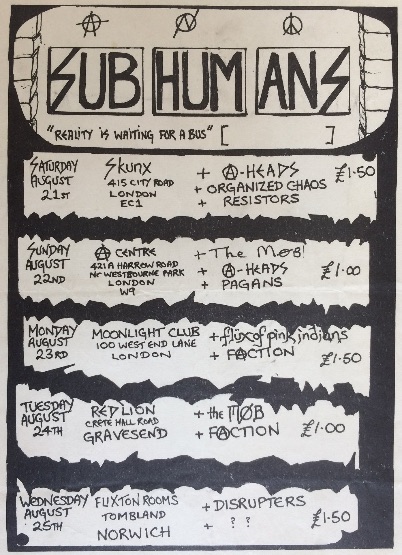 SUBHUMANS
"REALITY IS WAITING FOR A BUS" [ ]
SATURDAY AUGUST 21ST
SKUNX
415 CITY ROAD
LONDON
EC1
+ A-HEADS
+ ORGANIZED CHAOS
+ RESISTORS
£1·50
SUNDAY AUGUST 22ND
A CENTRE
421A HARROW ROAD
Nr WESTBOURNE PARK
LONDON
W9
+ The MOB!
+ A-HEADS
+ PAGANS
£1·00
MONDAY AUGUST 23RD
MOONLIGHT CLUB
100 WEST END LANE
LONDON
+ flux of pink indians
+ FACTION
£1·50
TUESDAY AUGUST 24TH
RED LION
CRETE HALL ROAD
GRAVESEND
+ the MOB
+ FACTION
£1·00
WEDNESDAY AUGUST 25TH
FLIXTON ROOMS
TOMBLAND
NORWICH
+ DISRUPTERS
+ ? ?
£1·50